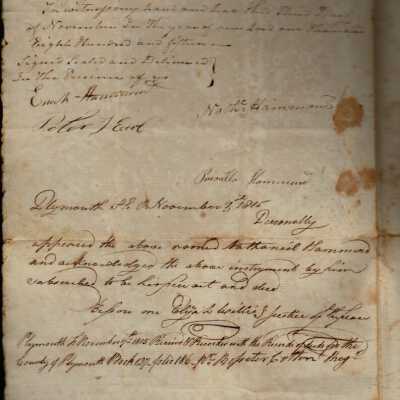 In witness my hand and seal this Third Day
of November In the year of our Lord one thousand
Eight Hundred and fifteen
Signed Sealed and Delivered
In the Presence of us
Enoch Hammond
Nathl. Hammond
Peter
Priscilla Hammond
Plymouth SS. November 7th. 1815
Personally
appeared the above named Nathaniel Hammond
and acknowledges the above instrument by him
subscribed to be his free act and deed
Before me Justice of the peace
Plymouth Ss November 7th. 1815 Received & Recorded with the Records of deeds for the
County of Plymouth Book 127. folio 186. Pr. Rossiter Cotton Regr.